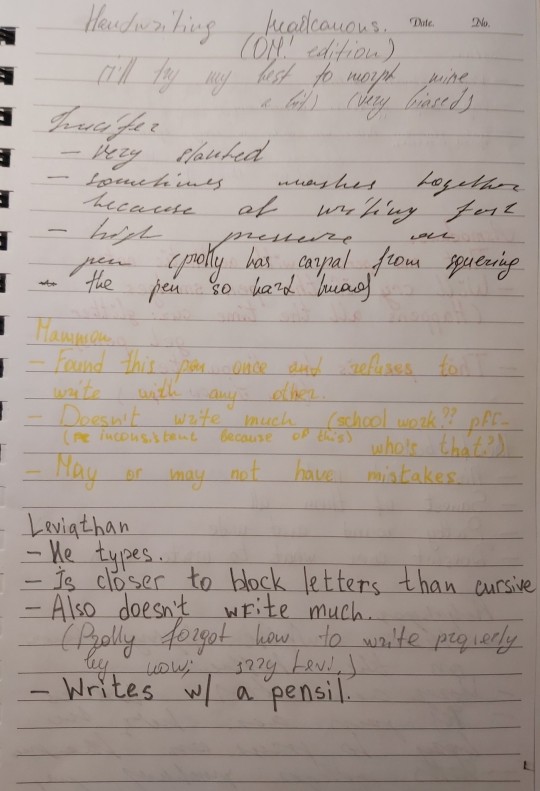 Handwriting headcanons. Date. No.
(OM! edition)
(I'll try my best to morph mine
a bit) (very biased)
Lucifer
- very slanted
- sometimes meshes together
because of writing fast
- high pressure on
pen (prolly has carpal from squeezing
the pen so hard lmao)
Mammon
- Found this pen once and refuses to
write with any other.
- Doesn't write much (school work?? pff-
(inconsistent because of this) who's that?)
- May or may not have mistakes.
Leviathan
- He types.
- Is closer to block letters than cursive
- Also doesn't write much.
(Prolly forgot how to write properly
by now; srry Levi.)
- Writes w/ a pensil.